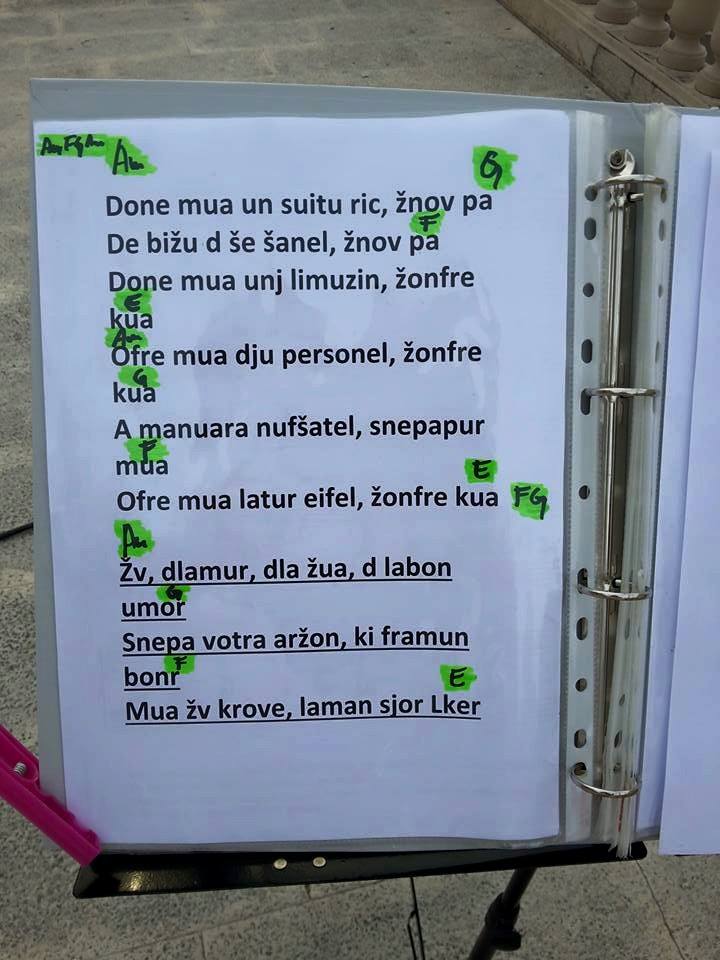 Am F G Am Am G
Done mua un suitu ric, žnov pa
F
De bižu d še šanel, žnov pa
Done mua unj limuzin, žonfre
E
kua
Am
Ofre mua dju personel, žonfre
G
kua
A manuara nufšatel, snepapur
F
mua
E
Ofre mua latur eifel, žonfre kua FG
Am
Žv, dlamur, dla žua, d labon
G
umor
Snepa votra aržon, ki framun
F
bonr
E
Mua žv krove, laman sjor Lker